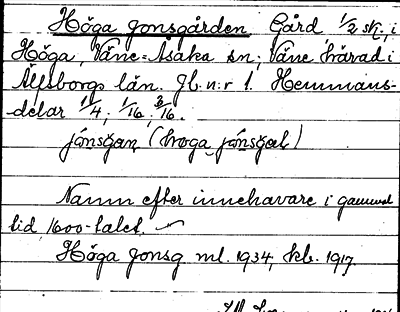 Höga Jonsgården, Gård 1/2 sk. i
Höga, Väne-Åsaka sn, Väne härad i
Älfsborgs län. Jb. n:r 1. Hemmans-
delar 1/4, 1/16, 3/16.
Namn efter innehavare i gammal
tid, 1600-talet.
Höga Jonsg ml. 1934, kb. 1917